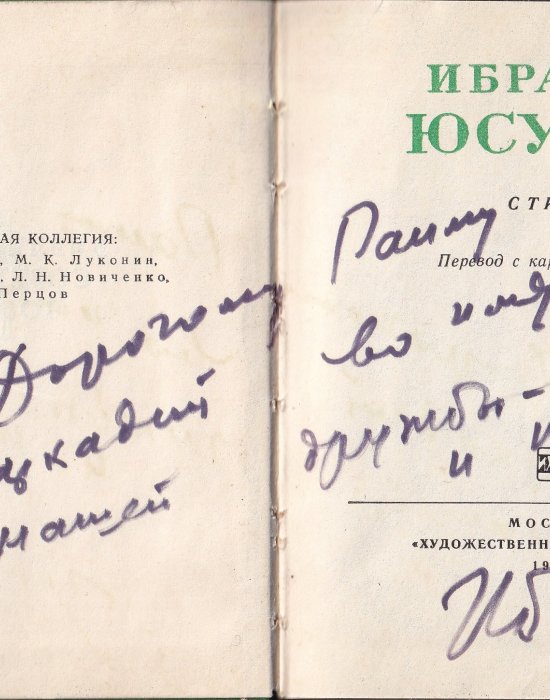 АЯ КОЛЛЕГИЯ:
, М. К. Луконин,
, Л. Н. Новиченко,
Перцов
Дорогому
нашей
ИБРА
ЮСУ
СТИ
Перевод с кар
Раиму
во имя
дружбы -
и и
МОС
«ХУДОЖЕСТВЕНН
19
Иб